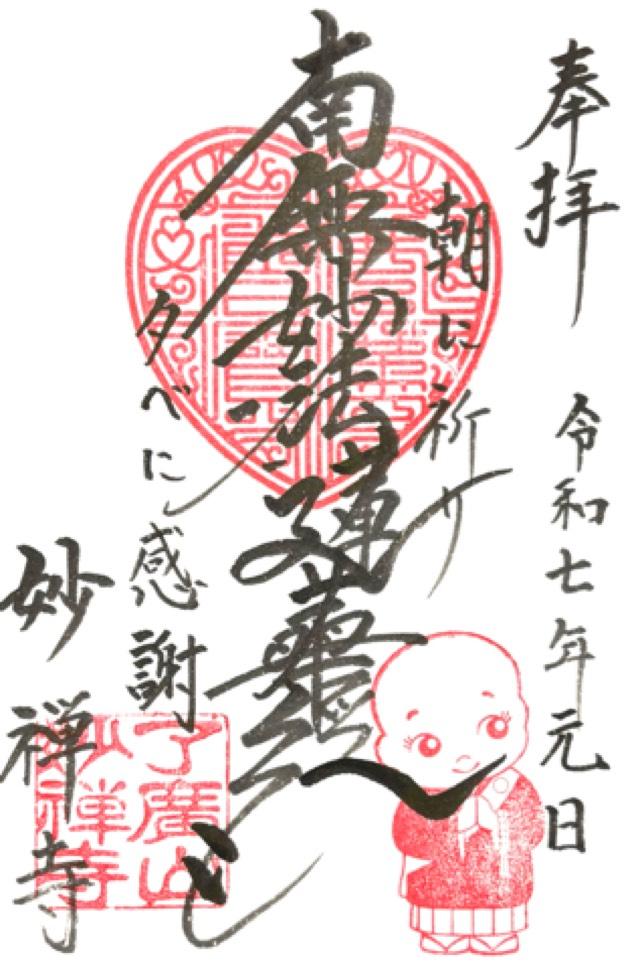 奉拝
令和七年元日
朝に祈り
南無妙法蓮華経
夕べに感謝
妙禅寺
了廣山
妙禅寺